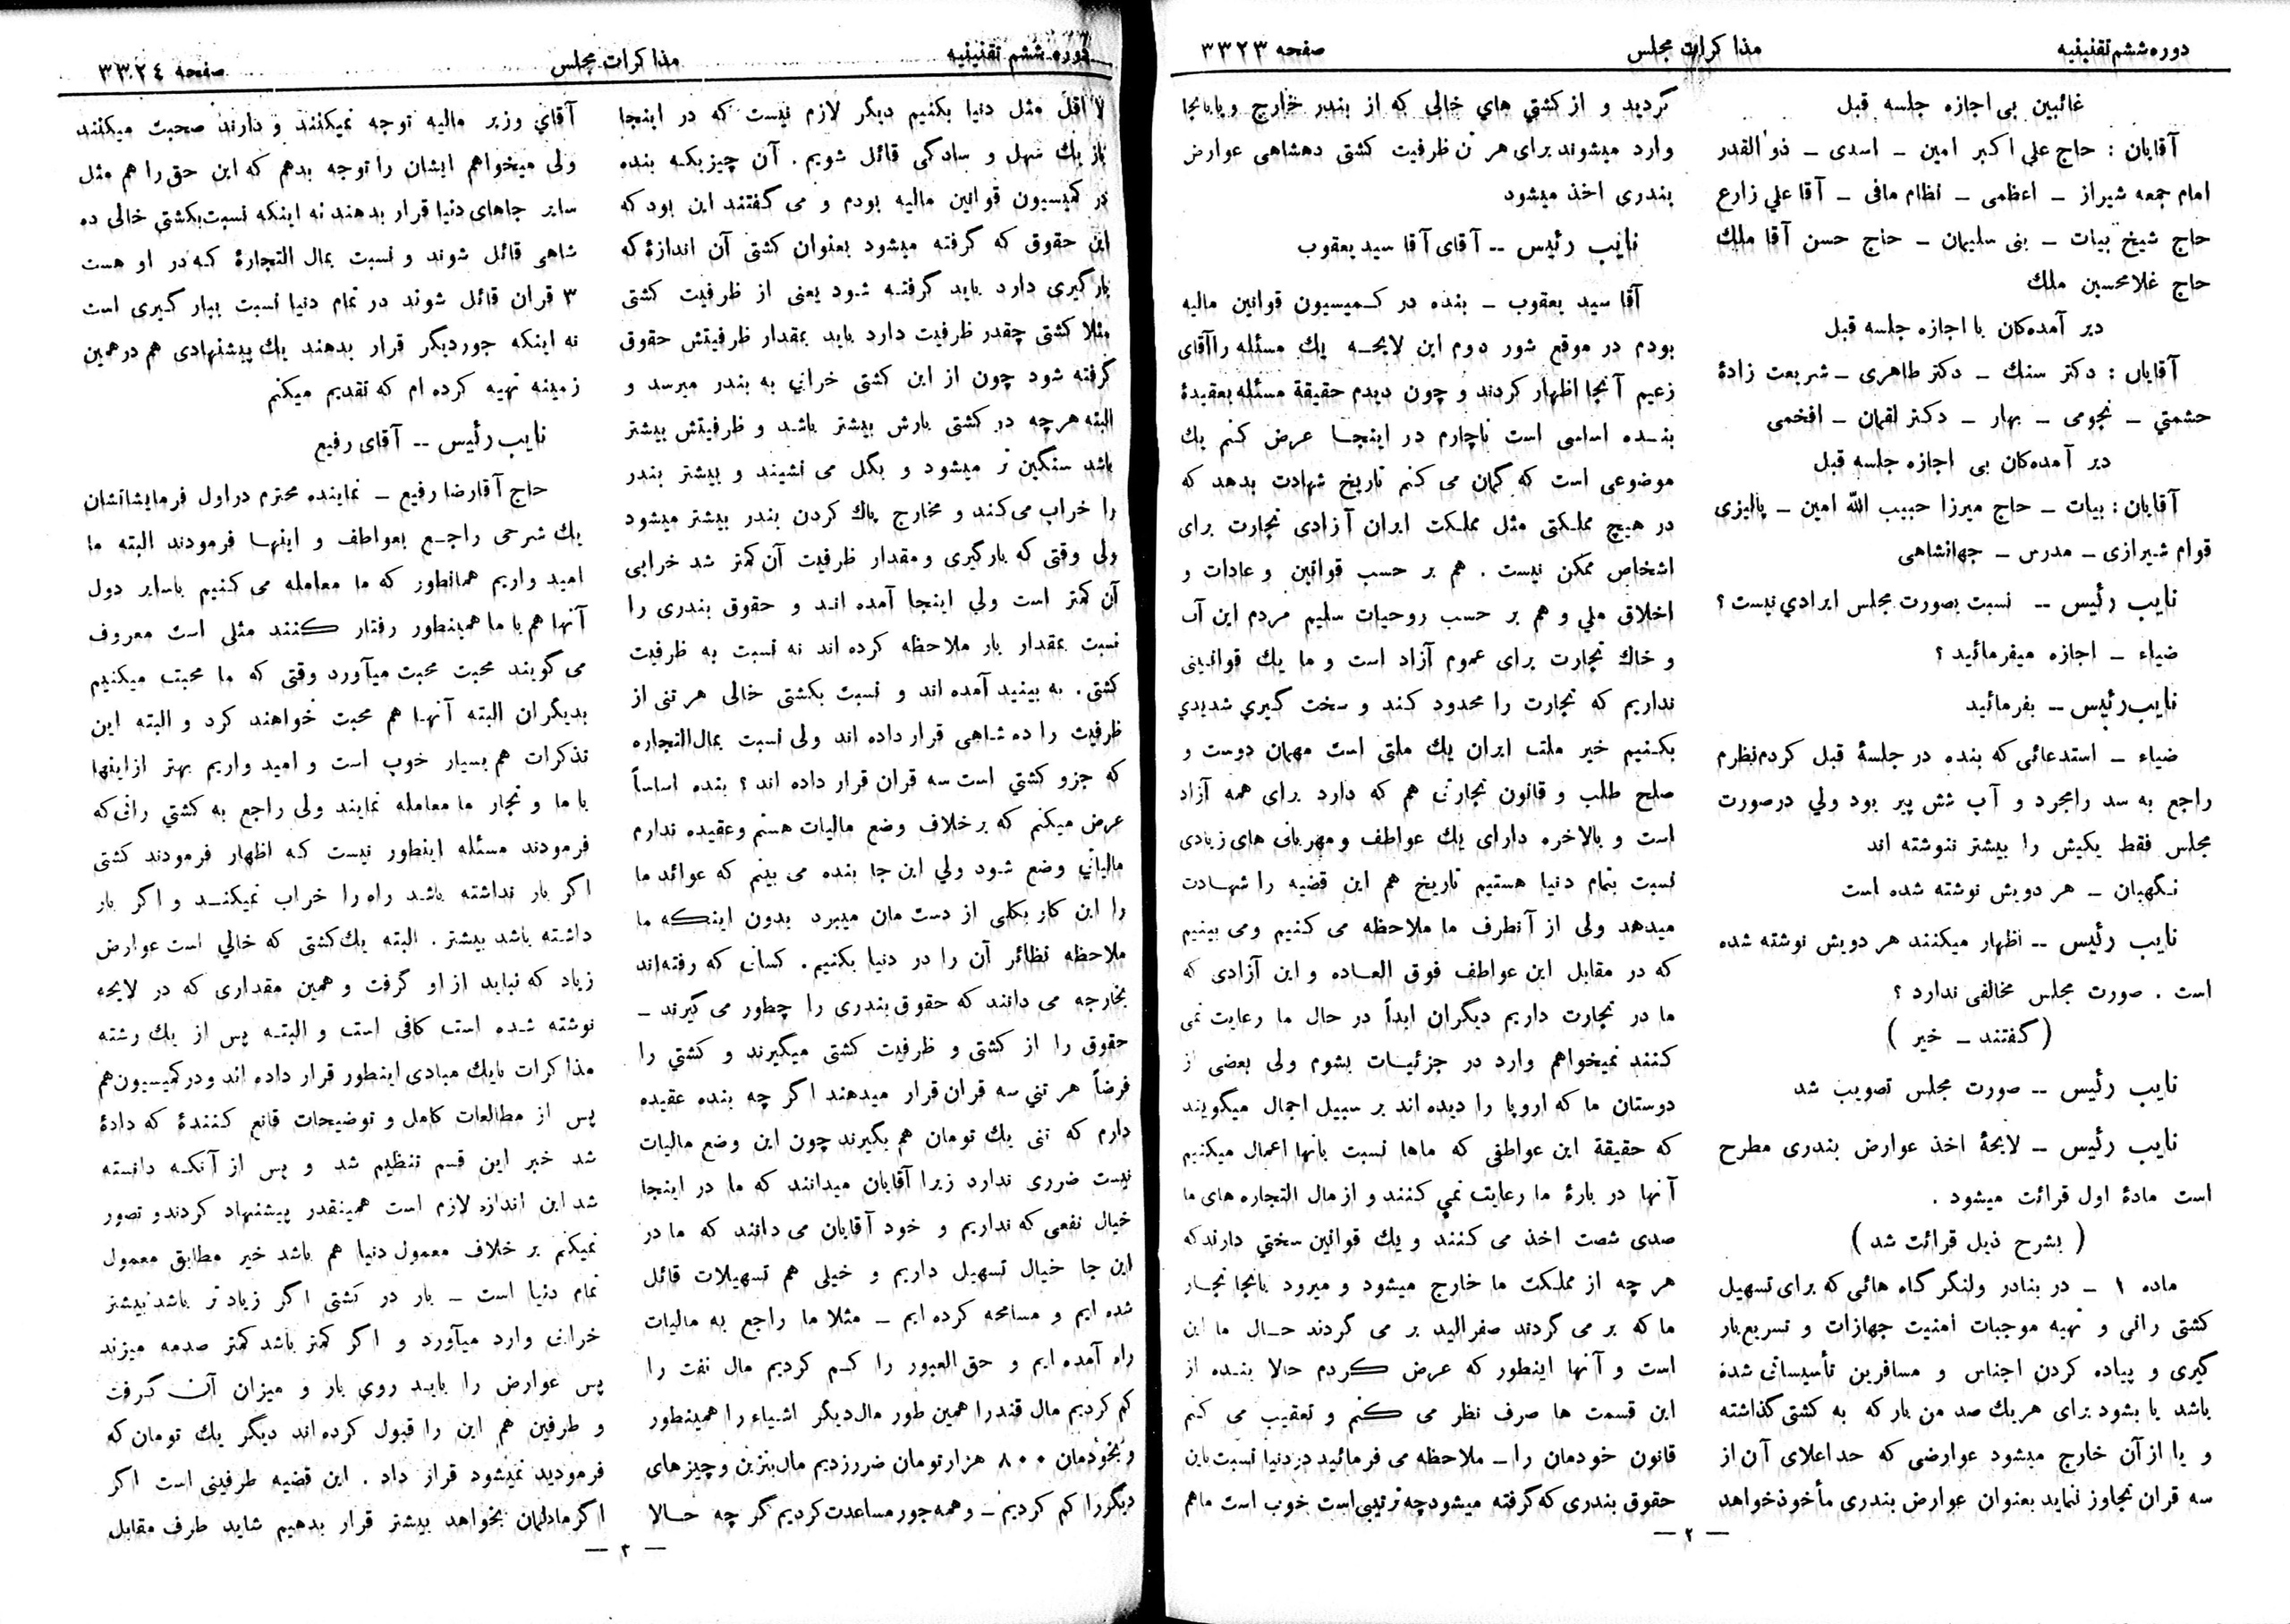 دوره ششم تقنینیه
مذاکرات مجلس
صفحه ۳۳۲۳
غائبین بی اجازه جلسه قبل
آقایان : حاج علي اکبر امین ـ اسدی ـ ذو القدر
امام جمعه شیراز ـ اعظمی ـ نظام مافی ـ آقا علي زارع
حاج شیخ بیات ـ بنی سلیمان ـ حاج حسن آقا ملك
حاج غلامحسین ملك
دیر آمده‌گان با اجازه جلسه قبل
آقایان : دکتر سنك ـ دکتر طاهری ـ شریعت زادهٔ
حشمتي ـ نجومی ـ بهار ـ دکتر لقمان ـ افخمی
دیر آمده‌کان بی اجازه جلسه قبل
آقایان : بیات ـ حاج میرزا حبیب الله امین ـ پالیزی
قوام شیرازی ـ مدرس ـ جهانشاهی
نایب رئیس -- نسبت بصورت مجلس ایرادي نیست ؟
ضیاء ـ اجازه میفرمائید ؟
نایب رئیس -- بفرمائید
ضیاء ـ استدعائی که بنده در جلسهٔ قبل کردم نظرم
راجع به سد رامجرد و آب شش پیر بود ولي درصورت
مجلس فقط یکیش را بیشتر ننوشته اند
نگهبان ـ هر دویش نوشته شده است
نایب رئیس -- اظهار میکنند هر دویش نوشته شده
است . صورت مجلس مخالفی ندارد ؟
( گفتند ـ خیر )
نایب رئیس -- صورت مجلس تصویب شد
نایب رئیس -- لایحهٔ اخذ عوارض بندری مطرح
است مادهٔ اول قرائت میشود .
( بشرح ذیل قرائت شد )
ماده ۱ ـ در بنادر ولنگر گاه هائی که برای تسهیل
کشتی رانی و تهیه موجبات امنیت جهازات و تسریع بار
گیری و پیاده کردن اجناس و مسافرین تأسیساتی شده
باشد یا بشود برای هریك صد من بار که به کشتی گذاشته
و یا از آن خارج میشود عوارضی که حداعلای آن از
سه قران تجاوز ننماید بعنوان عوارض بندری مأخوذ خواهد
گردید و از کشتي هاي خالی که از بندر خارج ویابآنجا
وارد میشوند برای هر تن ظرفیت کشتی دهشاهی عوارض
بندری اخذ میشود
نایب رئیس -- آقای آقا سید یعقوب
آقا سید یعقوب ـ بنده در کمیسیون قوانین مالیه
بودم در موقع شور دوم این لایحه یك مسئله راآقای
زعیم آنجا اظهار کردند و چون دیدم حقیقة مسئله بعقیدهٔ
بنده اساسی است ناچارم در اینجا عرض کنم یك
موضوعی است که گمان می کنم تاریخ شهادت بدهد که
در هیچ مملکتی مثل مملکت ایران آزادی تجارت برای
اشخاص ممکن نیست . هم بر حسب قوانین و عادات و
اخلاق ملي و هم بر حسب روحیات سلیم مردم این آب
و خاك تجارت برای عموم آزاد است و ما یك قوانینی
نداریم که تجارت را محدود کند و سخت گیري شدیدي
بکنیم خیر ملت ایران یك ملتی است مهمان دوست و
صلح طلب و قانون تجارتی هم که دارد برای همه آزاد
است و بالاخره دارای یك عواطف ومهربانی های زیادی
نسبت بتمام دنیا هستیم تاریخ هم این قضیه را شهادت
میدهد ولی از آنطرف ما ملاحظه می کنیم ومی بینیم
که در مقابل این عواطف فوق العاده و این آزادی که
ما در تجارت داریم دیگران ابداً در حال ما رعایت نمی
کنند نمیخواهم وارد در جزئیات بشوم ولی بعضی از
دوستان ما که اروپا را دیده اند بر سبیل اجمال میگویند
که حقیقة این عواطفی که ماها نسبت بآنها اعمال میکنیم
آنها در بارهٔ ما رعایت نمي کنند و از مال التجاره های ما
صدی شصت اخذ می کنند و یك قوانین سختي دارند که
هر چه از مملکت ما خارج میشود و میرود بآنجا تجار
ما که بر می گردند صفرالید بر می گردند حال ما این
است و آنها اینطور که عرض کردم حالا بنده از
این قسمت ها صرف نظر می کنم و تعقیب می کنم
قانون خودمان را ـ ملاحظه می فرمائید در دنیا نسبت باین
حقوق بندری که گرفته میشود چه ترتیبی است خوب است ماهم
— ۲ —
دوره ششم تقنینیه
مذاکرات مجلس
صفحه ۳۳۲٤
لا اقل مثل دنیا بکنیم دیگر لازم نیست که در اینجا
باز یك سهل و سادگی قائل شویم . آن چیزیکه بنده
در کمیسیون قوانین مالیه بودم و می گفتند این بود که
این حقوق که گرفته میشود بعنوان کشتی آن اندازهٔ که
بار گیری دارد باید گرفته شود یعنی از ظرفیت کشتی
مثلا کشتی چقدر ظرفیت دارد باید بمقدار ظرفیتش حقوق
گرفته شود چون از این کشتی خرابی به بندر میرسد و
البته هرچه در کشتی بارش بیشتر باشد و ظرفیتش بیشتر
باشد سنگین تر میشود و بگل می نشیند و بیشتر بندر
را خراب می‌کند و مخارج پاك کردن بندر بیشتر میشود
ولی وقتی که بارگیری و مقدار ظرفیت آن کمتر شد خرابی
آن کمتر است ولي اینجا آمده اند و حقوق بندری را
نسبت بمقدار بار ملاحظه کرده اند نه نسبت به ظرفیت
کشتی . به بینید آمده اند و نسبت بکشتی خالی هر تنی از
ظرفیت را ده شاهی قرار داده اند ولی نسبت بمال‌التجاره
که جزو کشتي است سه قران قرار داده اند ؟ بنده اساساً
عرض میکنم که برخلاف وضع مالیات هستم وعقیده ندارم
مالیاتي وضع شود ولي این جا بنده می بینم که عوائد ما
را این کار بکلی از دست مان میبرد بدون اینکه ما
ملاحظه نظائر آن را در دنیا بکنیم . کسانی که رفته‌اند
بخارجه می دانند که حقوق بندری را چطور می گیرند ـ
حقوق را از کشتی و ظرفیت کشتی میگیرند و کشتي را
فرضاً هر تني سه قران قرار میدهند اگر چه بنده عقیده
دارم که تنی یك تومان هم بگیرند چون این وضع مالیات
نیست ضرری ندارد زیرا آقایان میدانند که ما در اینجا
خیال نفعی که نداریم و خود آقایان می دانند که ما در
این جا خیال تسهیل داریم و خیلی هم تسهیلات قائل
شده ایم و مسامحه کرده ایم ـ مثلا ما راجع به مالیات
راه آمده ایم و حق العبور را کم کردیم مال نفت را
کم کردیم مال قندرا همین طور مال دیگر اشیاء را همینطور
وبخودمان ۸۰۰ هزارتومان ضررزدیم مال بنزین و چیزهای
دیگررا کم کردیم ـ و همه جور مساعدت کردیم گر چه حالا
آقاي وزیر مالیه توجه نمیکنند و دارند صحبت میکنند
ولی میخواهم ایشان را توجه بدهم که این حق را هم مثل
سایر جاهای دنیا قرار بدهند نه اینکه نسبت بکشتي خالی ده
شاهی قائل شوند و نسبت بمال التجارهٔ که در او هست
۳ قران قائل شوند در تمام دنیا نسبت ببار گیری است
نه اینکه جوردیگر قرار بدهند یك پیشنهادی هم درهمین
زمینه تهیه کرده ام که تقدیم میکنم
نایب رئیس -- آقای رفیع
حاج آقارضا رفیع ـ نماینده محترم دراول فرمایشاتشان
یك شرحی راجع بعواطف و اینها فرمودند البته ما
امید واریم همانطور که ما معامله می کنیم باسایر دول
آنها هم با ما همینطور رفتار کنند مثلی است معروف
می گویند محبت محبت میآورد وقتی که ما محبت میکنیم
بدیگران البته آنها هم محبت خواهند کرد و البته این
تذکرات هم بسیار خوب است و امید واریم بهتر ازاینها
با ما و تجار ما معامله نمایند ولی راجع به کشتي رانی که
فرمودند مسئله اینطور نیست که اظهار فرمودند کشتی
اگر بار نداشته باشد راه را خراب نمیکند و اگر بار
داشته باشد بیشتر . البته یك کشتی که خالي است عوارض
زیاد که نباید از او گرفت و همین مقداری که در لایحه
نوشته شده است کافی است و البته پس از یك رشته
مذاکرات بایك مبادی اینطور قرار داده اند ودر کمیسیون هم
پس از مطالعات کامل و توضیحات قانع کنندهٔ که دادهٔ
شد خبر این قسم تنظیم شد و پس از آنکه دانسته
شد این اندازه لازم است همینقدر پیشنهاد کردند و تصور
نمیکنم بر خلاف معمول دنیا هم باشد خیر مطابق معمول
تمام دنیا است ـ بار در کشتی اگر زیاد تر باشد بیشتر
خرابی وارد میآورد و اگر کمتر باشد کمتر صدمه میزند
پس عوارض را باید روي بار و میزان آن گرفت
و طرفین هم این را قبول کرده اند دیگر یك تومان که
فرمودید نمیشود قرار داد . این قضیه طرفینی است اگر
اگر مادلمان بخواهد بیشتر قرار بدهیم شاید طرف مقابل
— ۲ —